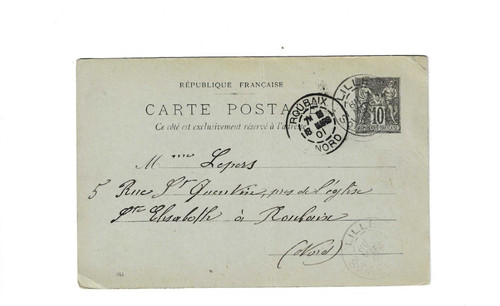 RÉPUBLIQUE FRANÇAISE
CARTE POSTA
Ce côté est exclusivement réservé à l'adresse
ROUBAIX
01
NORD
LILLE
10
Mme Lepers
5 Rue St Quentin, près de l'église
Ste Elisabeth à Roubaix
(Nord)
LILLE